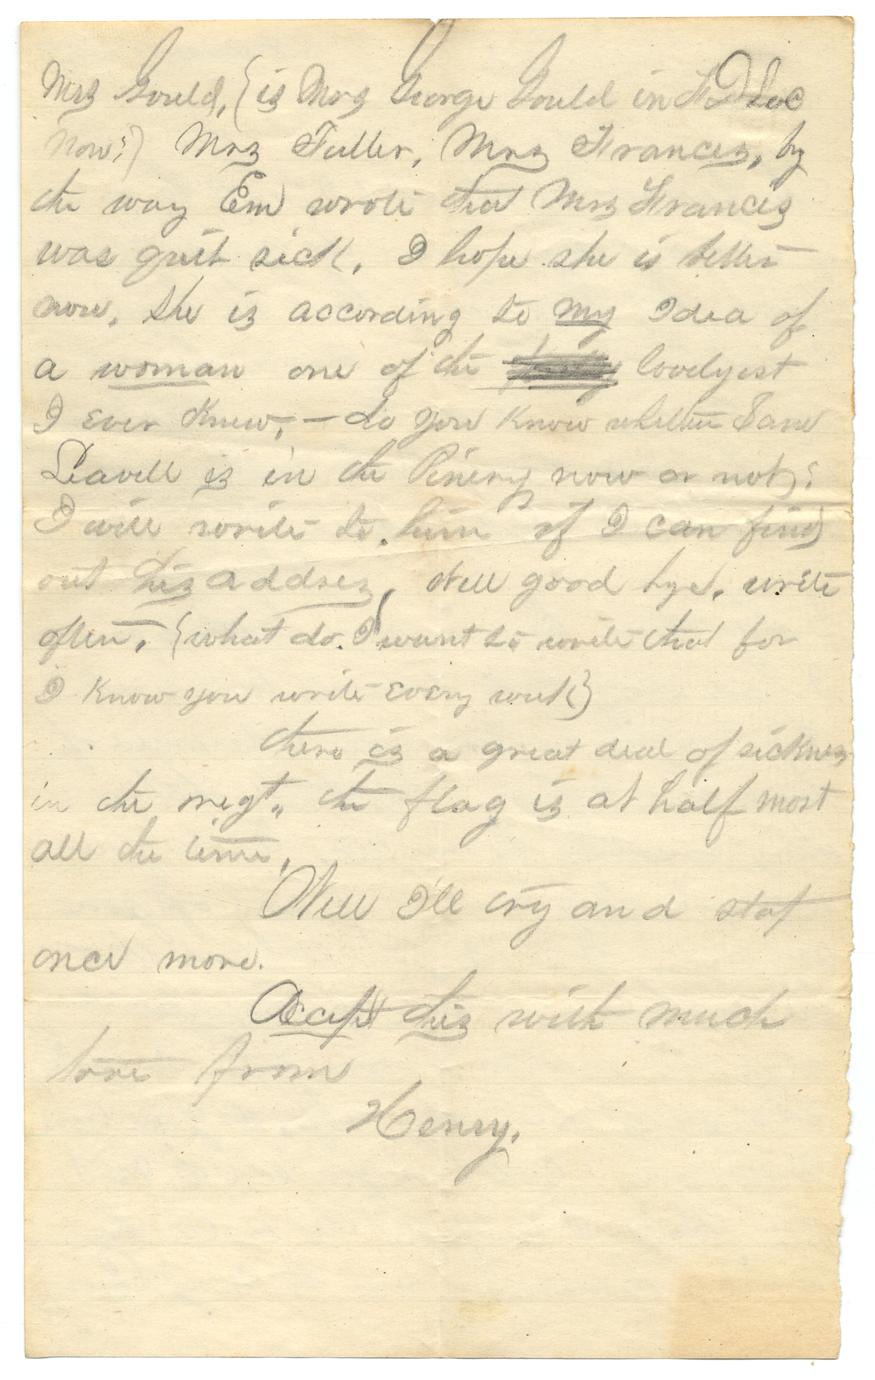 Mrs Gould, (is Mrs George Gould in F. D Lac
now?) Mrs Fuller, Mrs Francis, by
the way Em wrote that Mrs Francis
was quit sick, I hope she is better
now, she is according to my Idea of
a woman one of the lovelyest
I ever knew, – do you know whether
Leavell is in the Pinery now or not?
I will write to him if I can find
out his address, Well good bye, write
often, (what do I want to write that for
I know you write every week)
there is a great deal of sickness
in the regt., the flag is at half most
all the time,
Well I'll cry and stop
once more.
Accept this with much
love from
Henry.